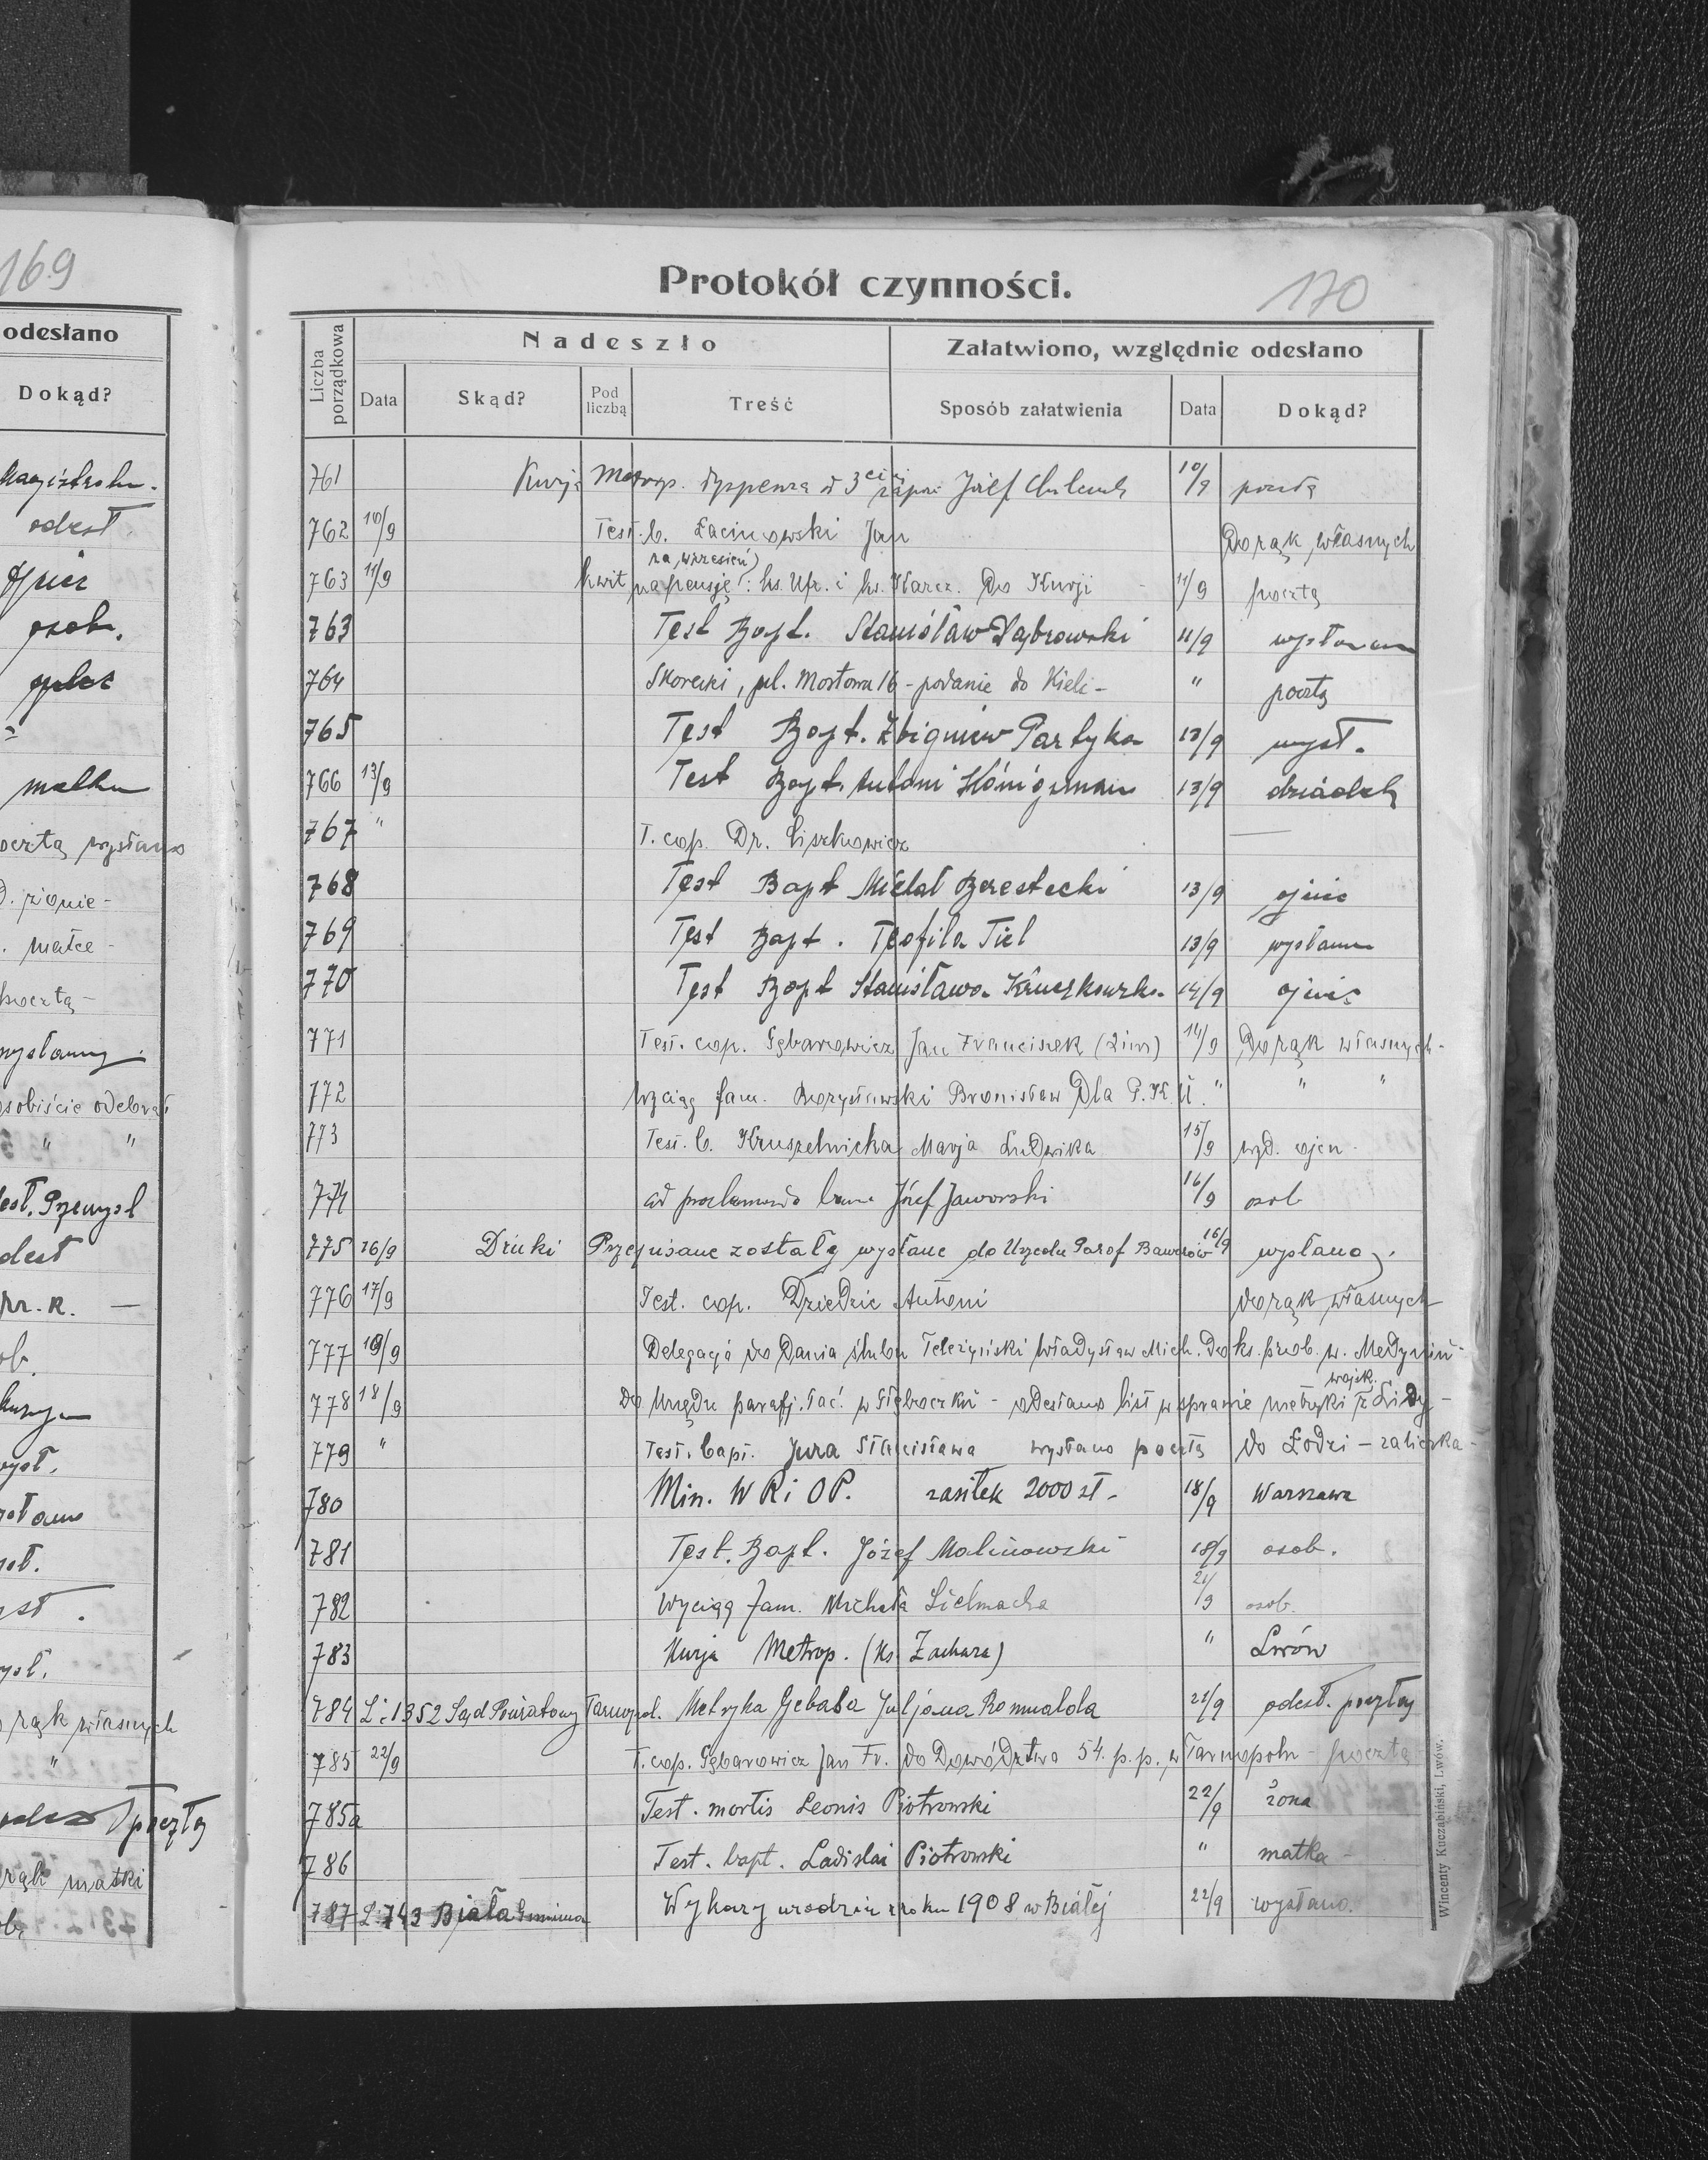 169
odesłano
Dokąd?
odesł.
osob.
pocztą wysłano
matce -
pocztą -
osobiście odebrał
" "
odesł. Przemysl
pr. k. —
rąk własnych
"
pocztą
rąk matki
Protokół czynności.
170
Liczba porządkowa
Nadeszło
Załatwiono, względnie odesłano
Data
Skąd?
Pod liczbą
Treść
Sposób załatwienia
Data
Dokąd?
761 Kurja Metrop. dyspensa od 3ciej zapow. Józef 10/9 pocztą
762 10/9 Test. b. Łacinowski Jan Do rąk własnych
za wrzesień)
763 11/9 kwit na pensję: ks. Ufr. i ks. Karcz. Do Kurji - 11/9 pocztą
763 Test Bapt. Stanisław Dąbrowski 11/9 wysłano
764 Skorecki, ul. Mostowa 16 - podanie do Kielc - " pocztą
765 Test Bapt. Zbigniew Partyka 13/9 wysł.
766 13/9 Test Bapt. Antoni Königsman 13/9 dziadek
767 " T. cop. Dr. Liszkowicz —
768 Test Bapt Michał Berestecki 13/9 ojciec
769 Test Bapt. Teofila Tiel 13/9 wysłano
770 Test Bapt Stanisława Kruczkowska 14/9 ojciec
771 Test. cop. Gębarowicz Jan Franciszek (2im) 14/9 Do rąk własnych -
772 wyciąg fam. Borysławski Bronisław Dla P.K.U. " " "
773 Test. b. Kruszelnicka Marja Ludwika 15/9 wyd. ojcu -
774 ad proclamando Józef Jaworski 16/9 osob
775 16/9 Druki Przepisane zostały wysłane do Urzędu Paraf Baworów 16/9 wysłano.
776 17/9 Test. cop. Dziedzic Antoni do rąk własnych
777 18/9 Delegacja do Dania ślubu Teleżyński Władysław Mich. Do ks. prob. w. Medynin -
wojsk.
778 18/9 Do Urzędu parafj. łać. w Głęboczku - odesłano list w sprawie metryki z Lidy -
779 " Test. bapt. Jura Stanisława wysłano pocztą do Łodzi - zaliczka -
780 Min. W R i O P. zasiłek 2000 zł - 18/9 Warszawa
781 Test. Bapt. Józef Malinowski 18/9 osob.
782 Wyciąg fam. Michała Lielmacha 21/9 osob.
783 Kurja Metrop. (ks. Zachara) " Lwów
784 L: 1352 Sąd Powiatowy Tarnopol. Metryka Gebala Juljana Romualda 21/9 odesł. pocztą
785 22/9 T. cop. Gębarowicz Jan Fr. do Dowództwa 54. p. p., w Tarnopolu - pocztą
785a Test. mortis Leonis Piotrowski 22/9 żona
786 Test. bapt. Ladislai Piotrowski " matka -
787 L: 743 Biała Gmina Wykazy urodzin z roku 1908 w Białej 22/9 wysłano.
Wincenty Kuczabiński, Lwów.